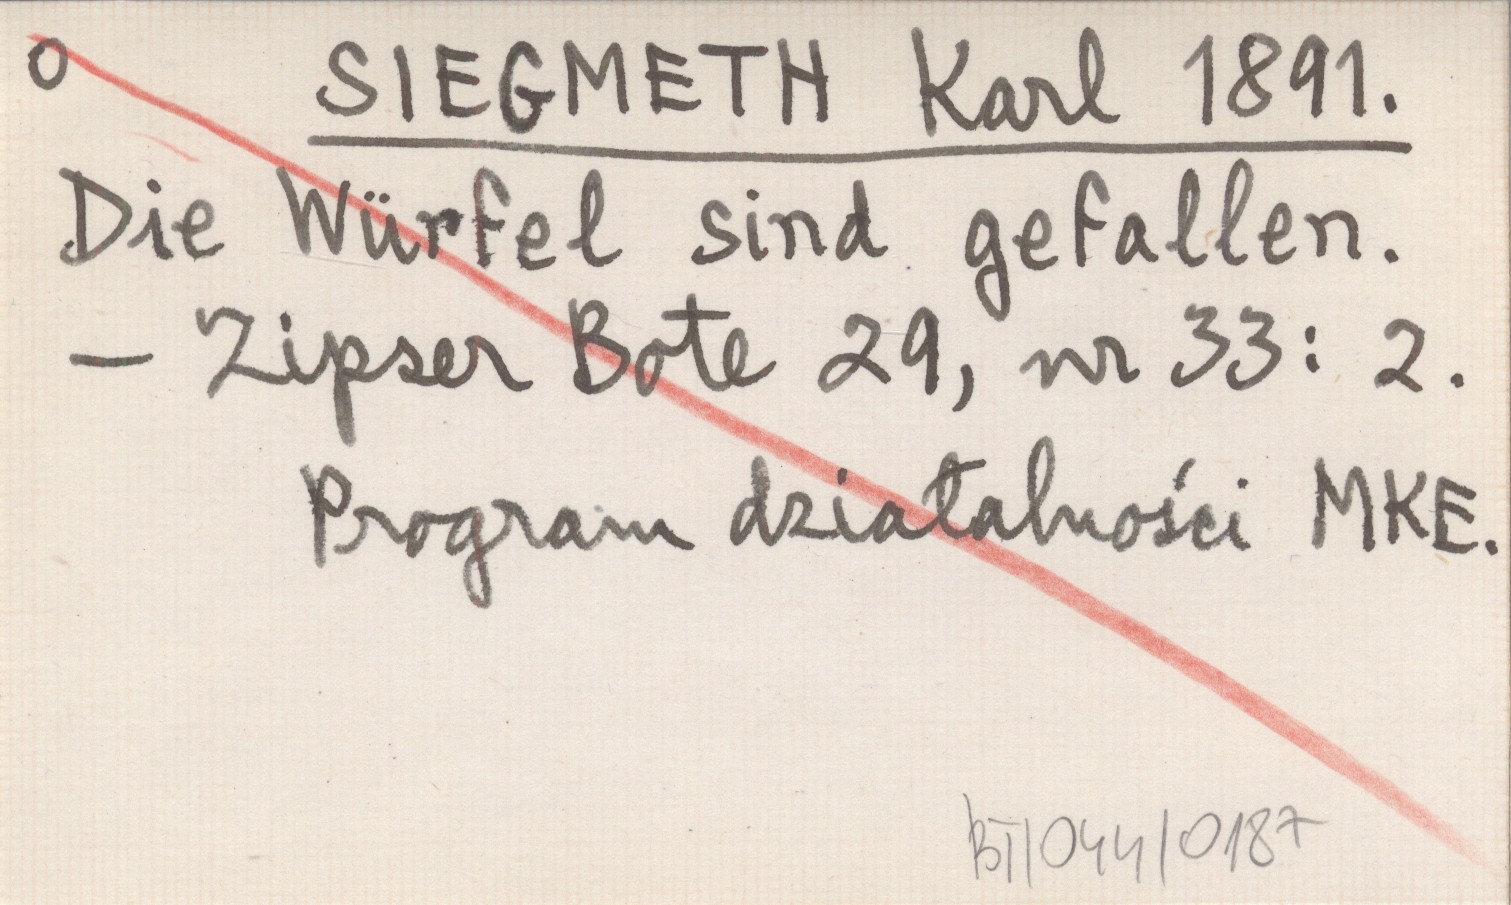 o SIEGMETH Karl 1891.
Die Würfel sind gefallen.
— Zipser Bote 29, nr 33: 2.
Program działalności MKE.
BT/044/0187